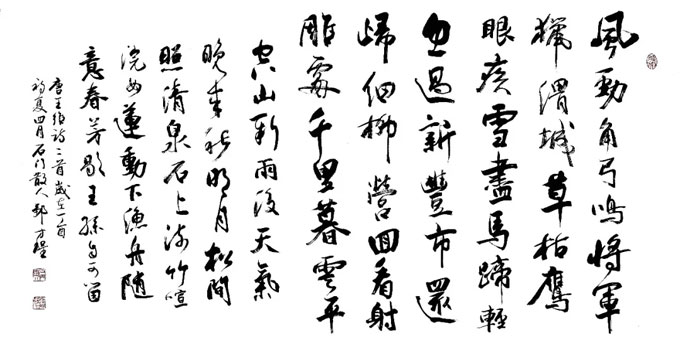 風勁角弓鳴將軍
獵渭城草枯鷹
眼疾雪盡馬蹄輕
忽過新豐市還
歸細柳營回看射
雕處千里暮雲平
空山新雨後天氣
晚來秋明月松間
照清泉石上流竹喧
浣女蓮動下漁舟隨
意春芳歇王孫自可留
唐王維詩二首歲在
夏四月石門散人